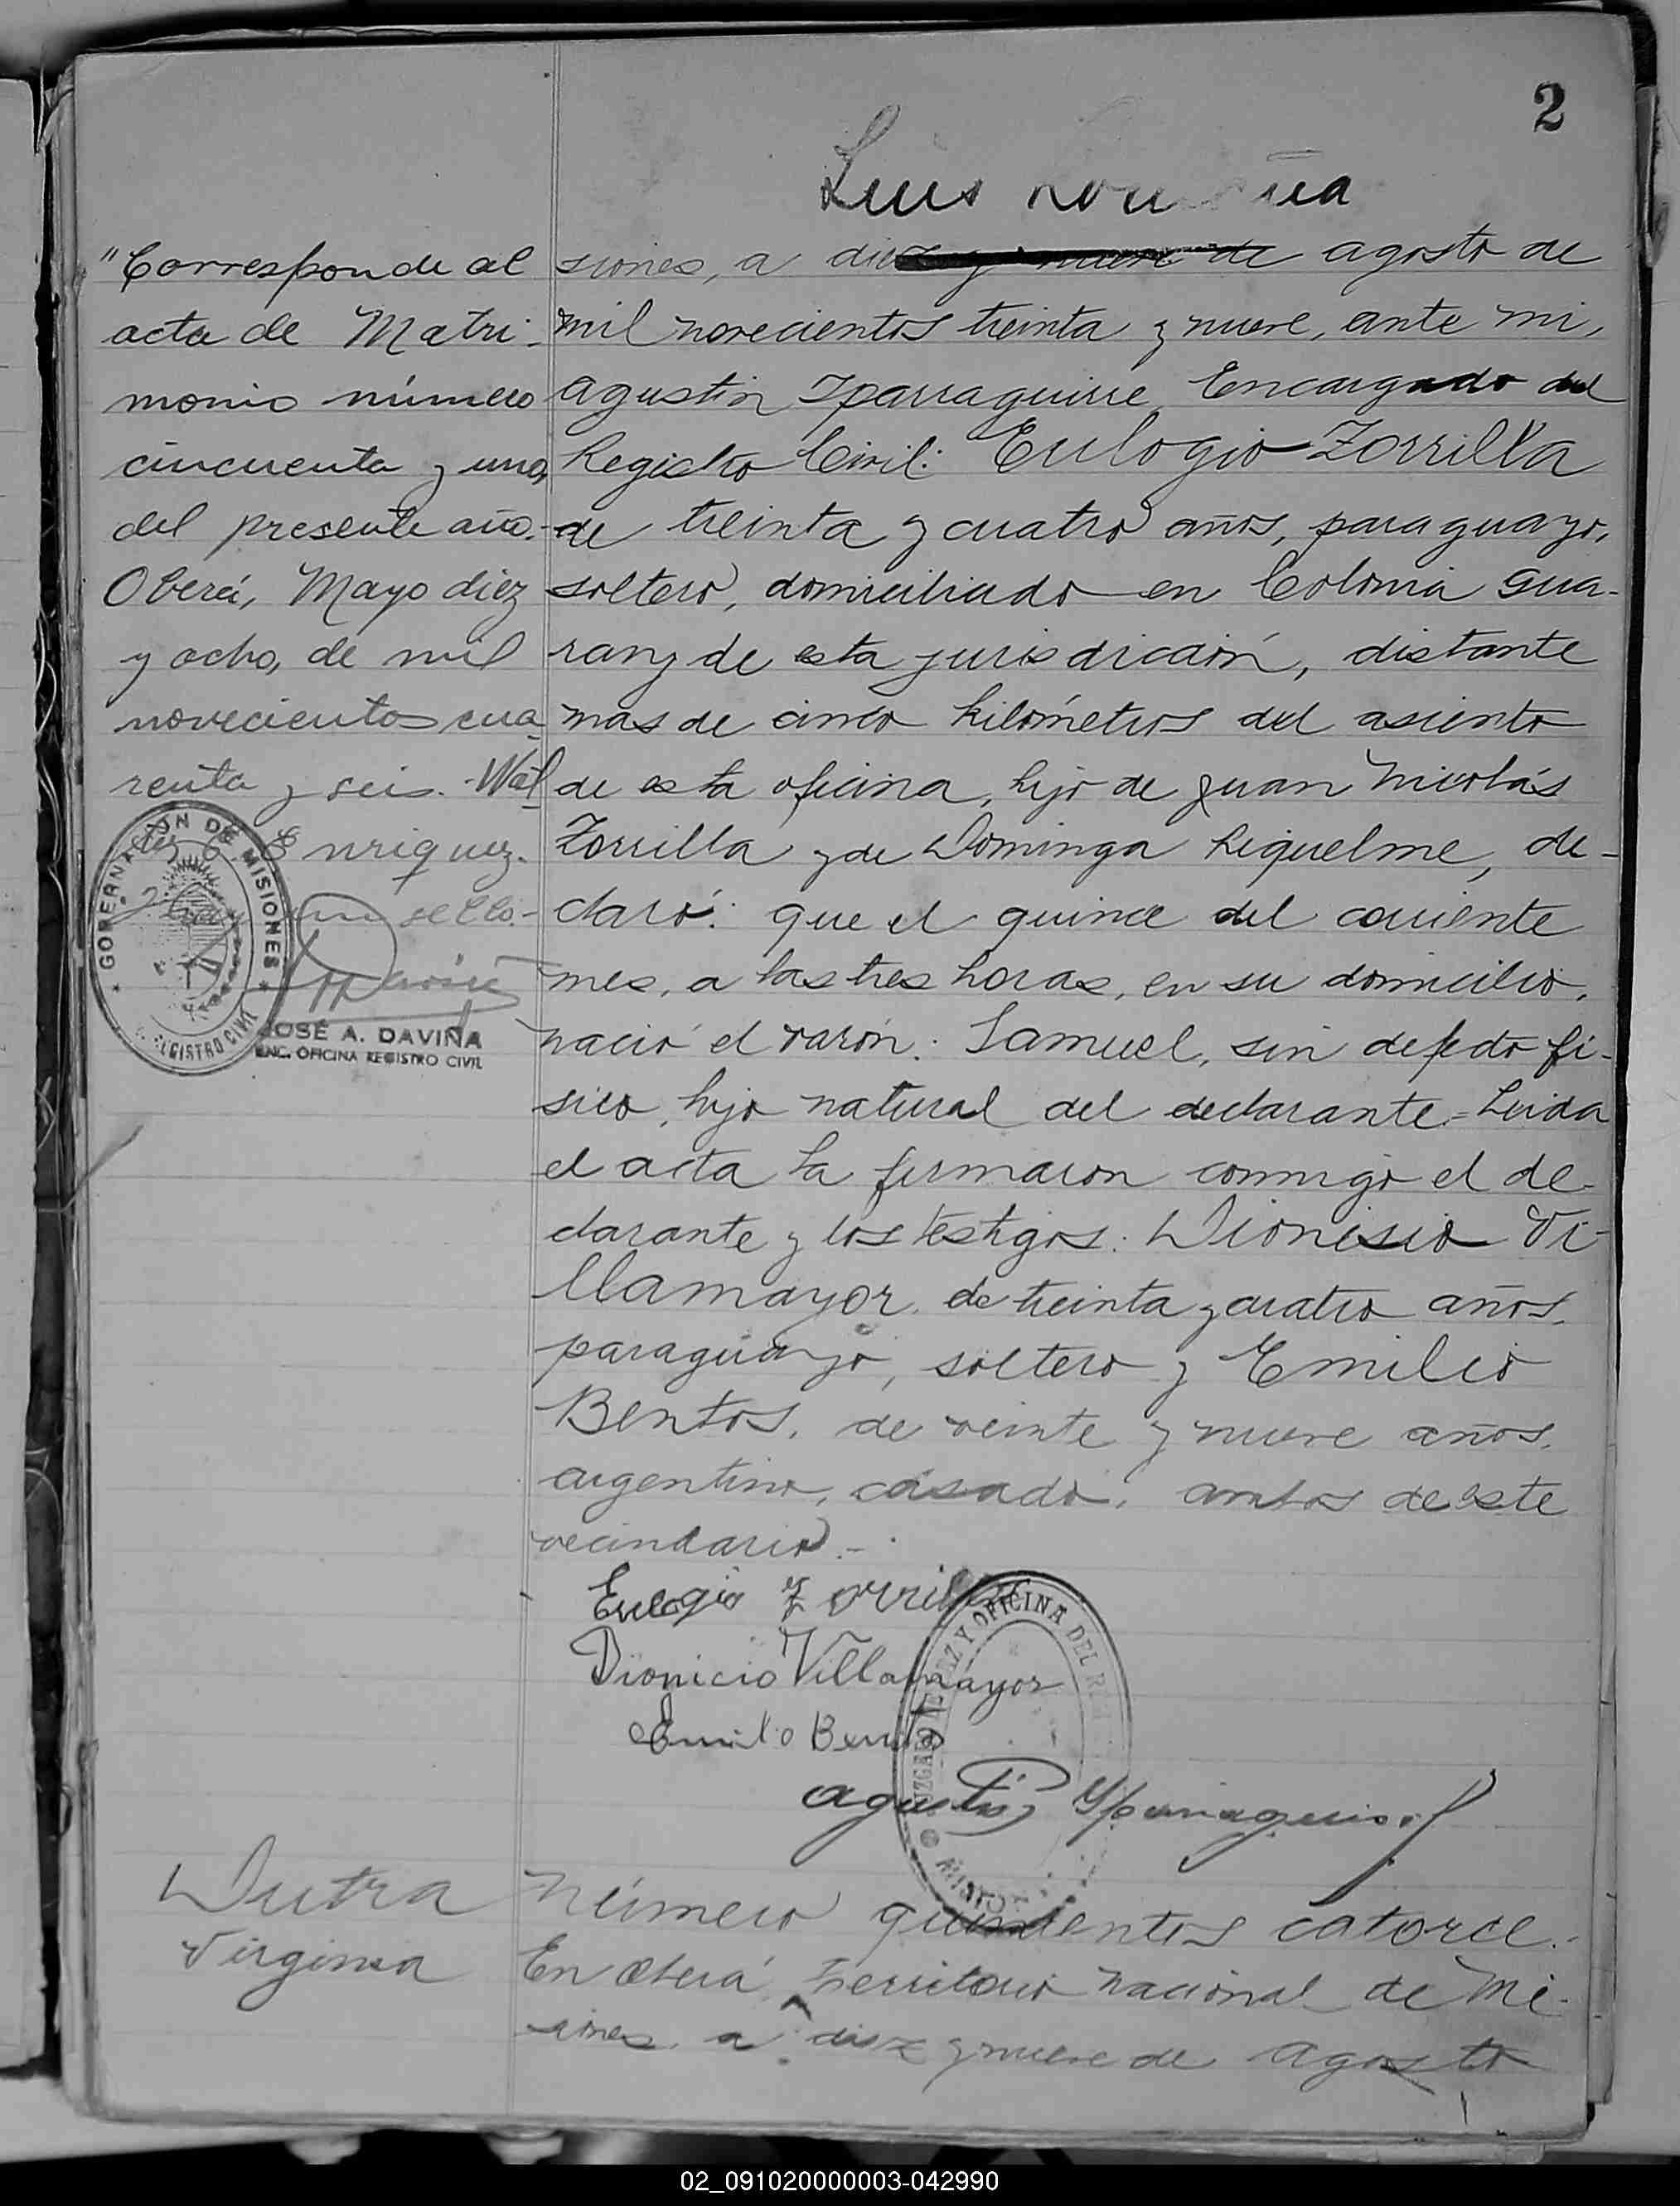 2
Luis
"Corresponde al
acta de Matri-
monio número
cincuenta y uno,
del presente año.-
Oberá, Mayo diez
y ocho, de mil
novecientos cua-
renta y seis.-Wal-
Enriquez.
sello.-
GOBERNACION DE MISIONES
REGISTRO CIVIL
JOSÉ A. DAVIÑA
ENC. OFICINA REGISTRO CIVIL
siones, a diez y nueve de agosto de
mil novecientos treinta y nueve, ante mi,
Agustin Yparraguirre Encargado del
Registro Civil: Eulogio Zorrilla
de treinta y cuatro años, paraguayo,
soltero, domiciliado en Colonia Gua-
rany de esta jurisdicción, distante
mas de cinco kilómetros del asiento
de esta oficina, hijo de Juan Nicolás
Zorrilla y de Dominga Riquelme, de-
claró: que el quince del corriente
mes, a las tres horas, en su domicilio,
nació el varón: Samuel, sin defecto fi-
sico, hijo natural del declarante.=Leida
el acta la firmaron conmigo el de-
clarante y los testigos: Dionisio Vi-
llamayor de treinta y cuatro años,
paraguayo, soltero y Emilio
Bentos, de veinte y nueve años,
argentino, casado, ambos de este
vecindario.-
Eulogio Zorrilla
Dionicio Villamayor
Emilio Bentos
Agustin Yparraguirre
JUZGADO DE PAZ Y OFICINA DEL
Dutra
Virginia
Número quinientos catorce.-
En Oberá, Territorio Nacional de Mi-
siones, a diez y nueve de Agosto
02_091020000003-042990